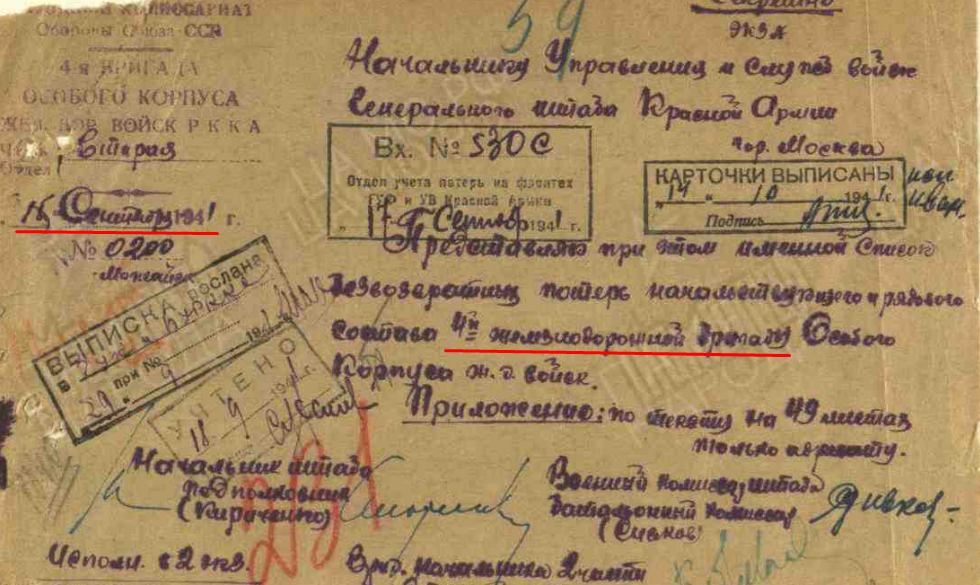 Обороны Союза ССР
4-я БРИГАДА
ОСОБОГО КОРПУСА
ВОЙСК Р К К А
Вторая
Отдел
15 Сентября 1941 г.
№ 0200
Можайск
экз
Начальнику Управления и Служб войск
Генерального штаба Красной Армии
гор. Москва
Вх. № 530с
Отдел учета потерь на фронтах
ГУФ и УВ Красной Армии
„17" Сентябр 1941 г.
КАРТОЧКИ ВЫПИСАНЫ
„14" 10 1941 г.
Подпись
Представляю при этом именной Список
безвозвратных потерь начальствующего и рядового
состава 4й железнодорожной бригады Особого
Корпуса ж.д. войск.
Приложение: по тексту на 49 листах
только адресату.
ВЫПИСКА послана
в
при №
29 9
УЧТЕНО
18 9 1941 г.
Начальник штаба
подполковник
(Кириченко)
Военный комиссар штаба
батальонный комиссар
(Сивков)
Исполн. в 2 экз.
Врид. начальника 2 части